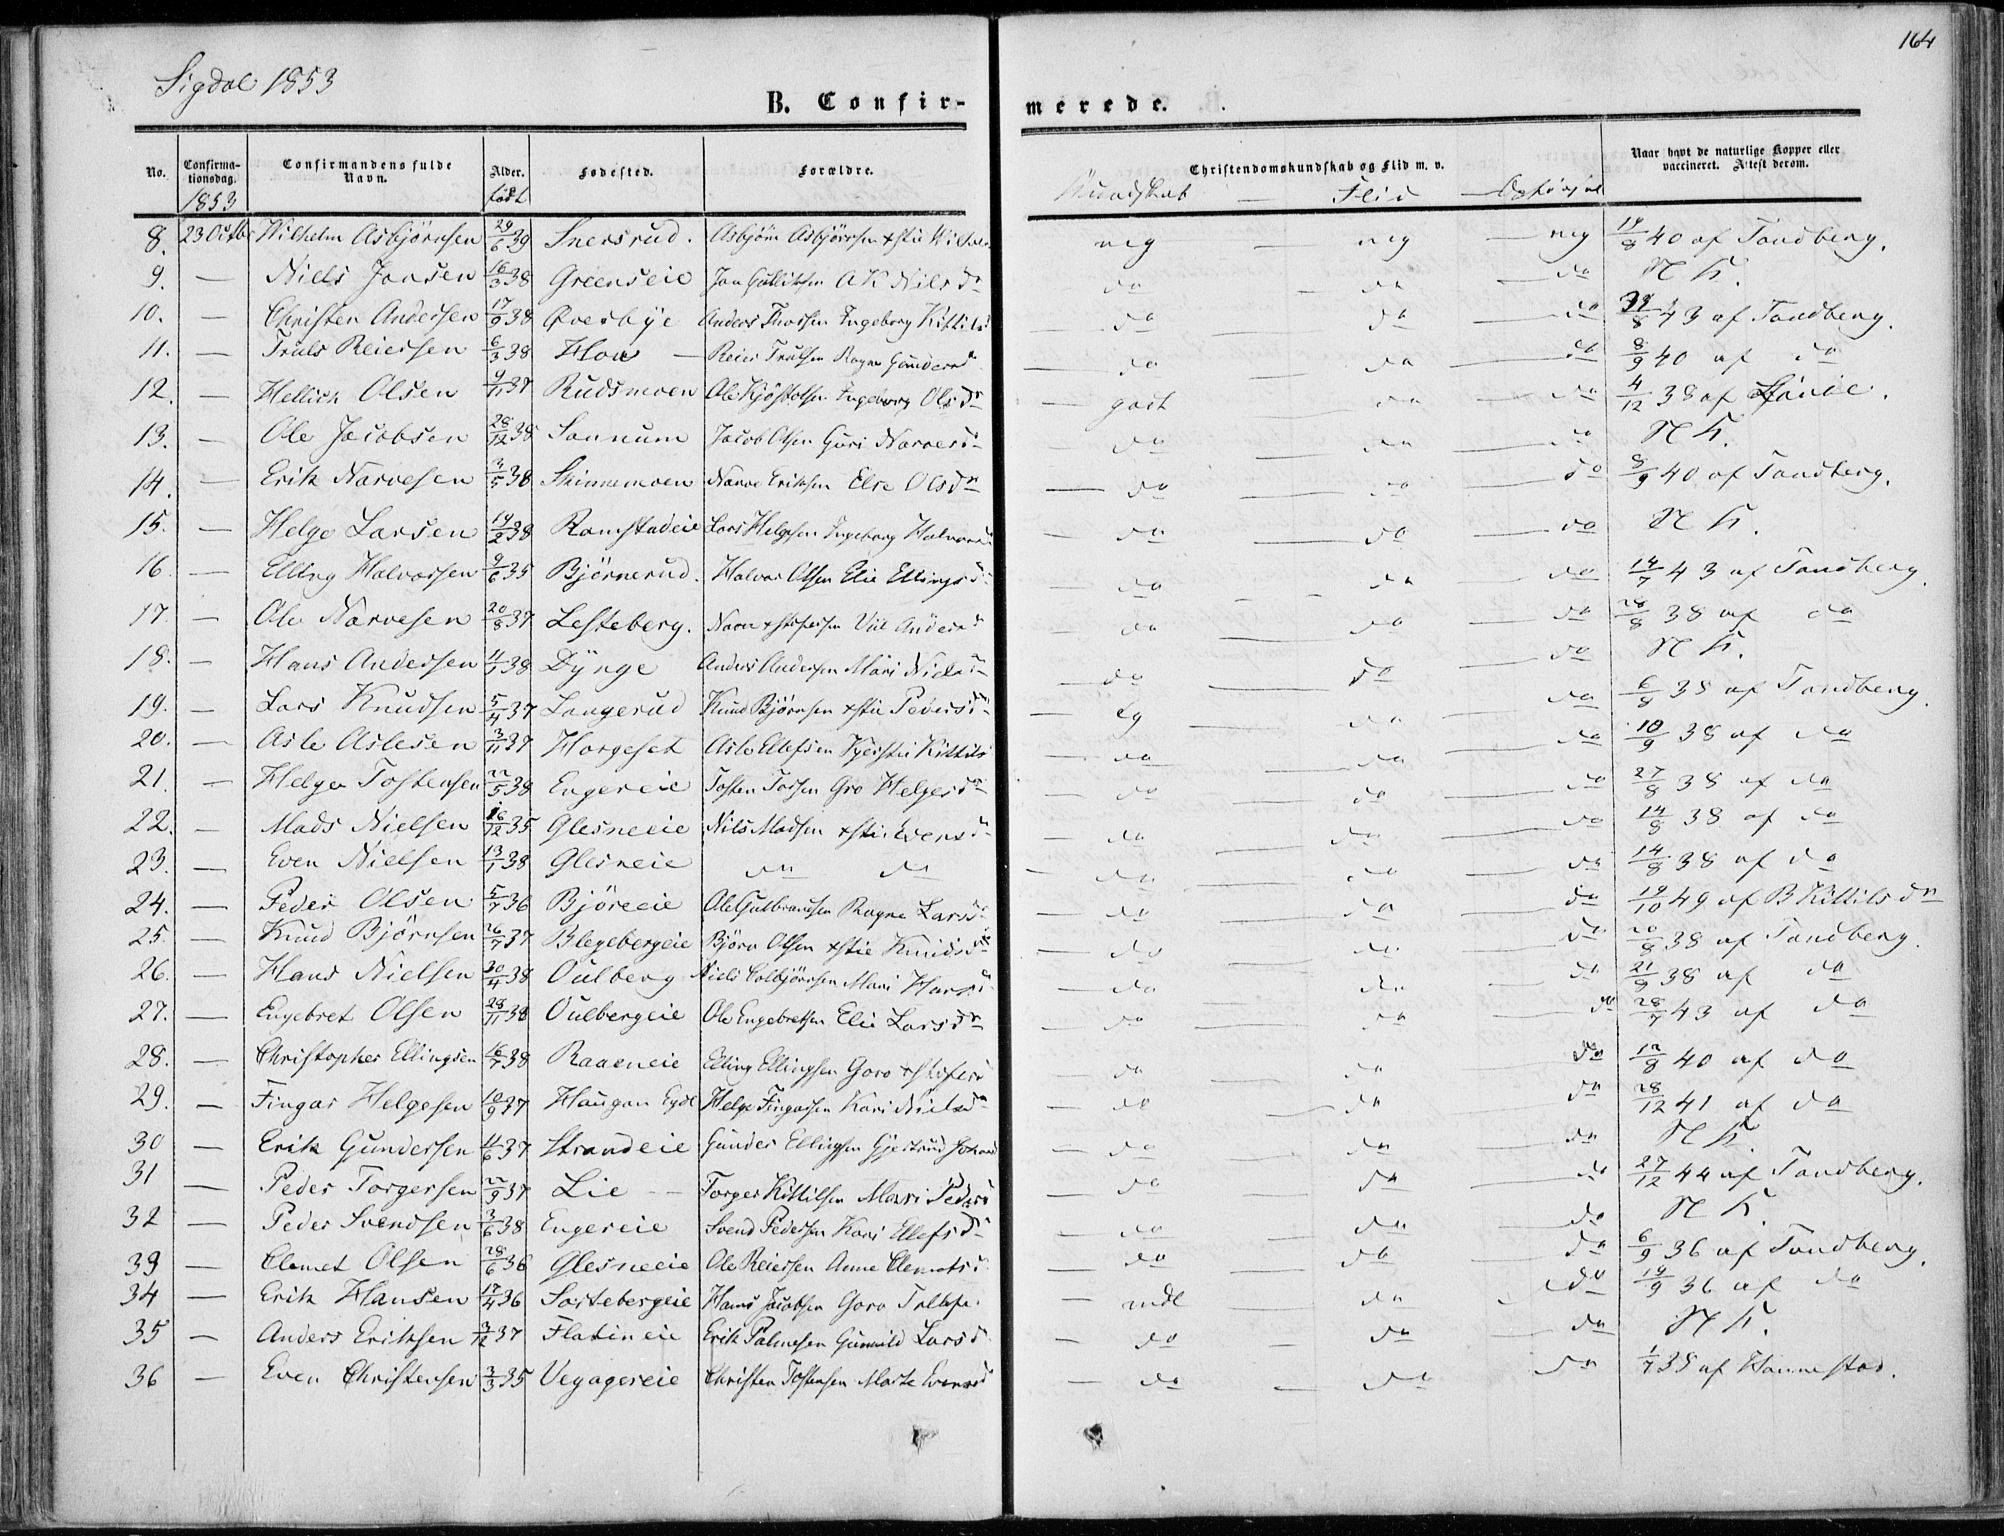 164
Sigdal 1853
B. Confirmerede.
No. Confirmationsdag. Confirmandens fulde Navn. Alder. Fødested. Forældre. Christendomskundskab og Flid m. v. Naar havt de naturlige Kopper eller vaccineret. Attest derom.
1853 født Kundskab — Flid —
8. 23 Octbr Wilhelm Asbjörnsen 29/6 39 Snersrud. Asbjörn Asbjörnsen mg — mg — mg 14/8 40 af Tandberg.
9. — Niels Jansen 16/3 38 Greenseie Jan Gulliksen A K Nilsdr do — do — do N K.
10. — Christen Andersen 17/9 38 Øvesbye Anders Thorsen Ingeborg Kittils — do do — do 43 af Tandberg.
11. — Truls Reiersen 6/3 38 Hove — Reier Trulsen Ragne Gunders — do do — do 8/9 40 af do
12. — Hellick Olsen 9/11 37 Rudsmoen Ole Kjöstolsen Ingeborg Olsdr — godt do — do 4/12 38 af
13. — Ole Jacobsen 28/12 38 Sannum Jacob Olsen Guri Narvesd — do do — do N K.
14. — Erik Narvesen 3/5 38 Skinnemoen Narve Eriksen Else Olsdr — do — do — do 8/9 40 af Tandberg.
15. — Helge Larsen 14/2 38 Ramstadeie Lars Helgesen Ingeborg Halvors — do — do — do N K.
16. — Elling Halvorsen 9/6 35 Björnerud. Halvor Olsen Elie Ellingsd — do — do — do 14/7 43 af Tandberg.
17. — Ole Narvesen 20/8 37 Lesteberg. Anders — do — do — do 28/8 38 af do
18. — Hans Andersen 11/1 38 Dynge Anders Andersen Mari Niels do — do — do N K.
19. — Lars Knudsen 5/4 37 Langerud Knud Björnsen Pedersd — Eg — do — do 6/8 38 af Tandberg.
20. — Asle Aslesen 3/11 37 Horgeset Asle Ellefsen Kjersti Kittils — do do — do 10/9 38 af do
21. — Helge Tostensen 22/5 38 Engereie Tosten Torsen Gro Helgesdr — do — do — do 27/8 38 af do
22. — Mads Nielsen 16/12 35 Glesneeie Nils Madsen Evens — do — do — do 14/8 38 af do
23. — Even Nielsen 13/1 38 Glesneie do do — do — do — do 14/8 38 af do
24. — Peder Olsen 5/7 36 Björeeie Ole Gulbrandsen Ragne Larsd — do — do — do 19/10 49 af B Kittilsdr
25. — Knud Björnsen 26/7 37 Blegebergeie Björn Olsen Knudsd — do — do — do 20/8 38 af Tandberg.
26. — Hans Nielsen 30/4 38 Oulberg Niels Colbjörnsen Mari Hansd — do do — do 21/9 38 af do
27. — Engebret Olsen 28/11 38 Oulbergeie Ole Engebretsen Elie Larsdr — do — do — do 28/7 43 af do
28. — Christopher Ellingsen 16/7 38 Raaeneie Elling Ellingsen Goro — do — do — do 12/8 40 af do
29. — Fingar Helgesen 10/9 37 Haugan Helge Fingarsen Kari Nielsdr — do — do — do 28/12 41 af do
30 — Erik Gundersen 11/6 37 Strandeie Gunder Ellingsen Gjertrud — do — do — do N K
31 — Peder Torgersen 22/9 37 Lie — Torger Kittilsen Mari Peders — do — do — do 27/12 44 af Tandberg.
32 — Peder Svendsen 3/6 38 Engereie Svend Pedersen Kari Ellefsd — do — do — do N K.
33 — Clemet Olsen 28/6 36 Glesneeie Ole Reiersen Anne Clemets — do — do — do 6/9 36 af Tandberg.
34 — Erik Hansen 17/4 36 Sortebergeie Hans Jacobsen Goro — mdl — do — do 19/9 36 af do
35 — Anders Eriksen 3/12 37 Flatineie Erik Palmesen Gunnild Larsd — do — do — do N K.
36 — Even Christensen 3/3 35 Vegagereie Christen Tostensen Marte Evensd — do — do — do 1/7 38 af Hannestad.